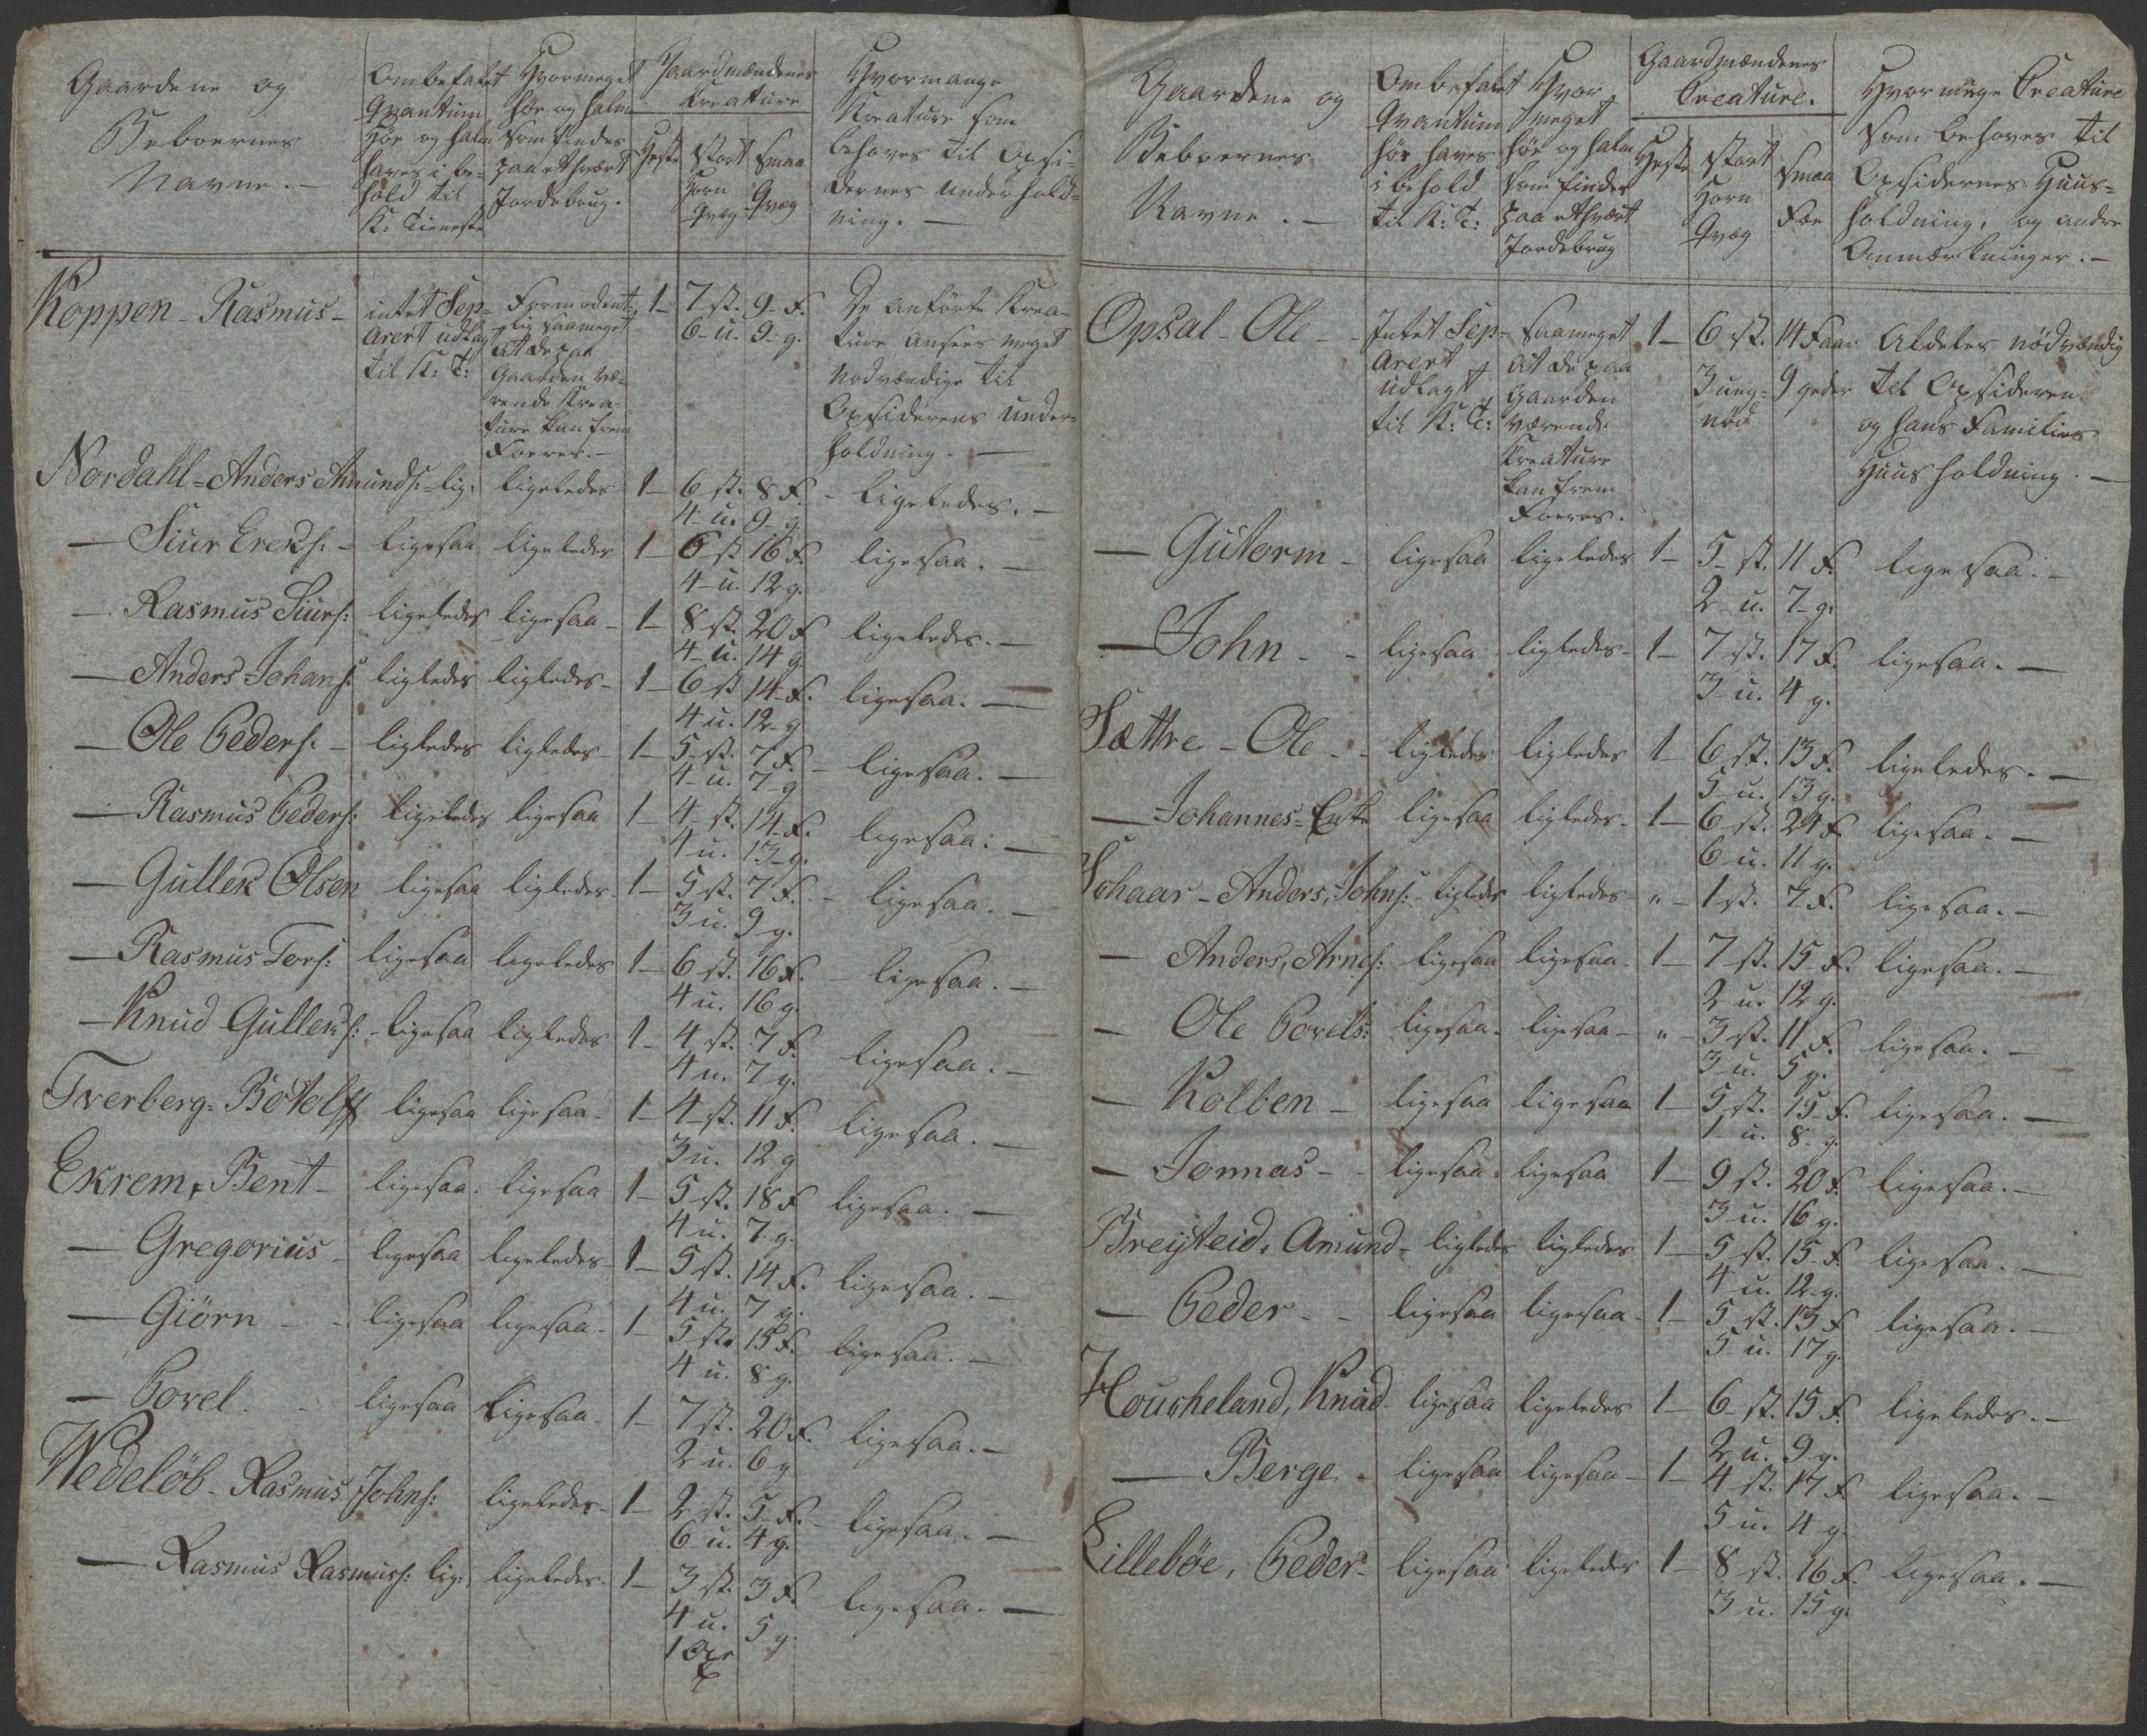 Gaardene og Beboernes Navne. —
Ombefalet Qvantum Höe og halm haves i be= hold til K: Tieneste
Hvormeget höe og halm som findes paa ethvært Jordebrug.
Gaardmændenes Kreature
Heste
stort Horn Qvæg
smaa Qvæg
Hvormange Kreature som behöves til Opsi= dernes underhold= ning. —
Koppen - Rasmus - intet Sep= arert udlagt til K: T: Formodent= lig saameget at de paa Gaarden væ= rende Krea= ture kan frem Foeres. — 1 - 7 st. 9 - F. De anförte Krea= ture ansees meget nödvændige til Opsiderens under= holdning. —
6 - u. 9 - g.
Nordahl = Anders Amunds: = lig: ligeledes 1 - 6 st. 8 F. - ligeledes. —
4 - u. 9 - g.
— Siur Ereks: - ligesaa ligeledes 1 - 6 st 16 F. ligesaa. —
4 - u. 12 g.
— Rasmus Siurs: ligeledes ligesaa - 1 - 8 st. 20 F ligeledes. —
4 - u. 14 g.
— Anders Johans: ligledes ligledes - 1 - 6 st 14 - F. ligesaa. —
4 u. 12 - g
— Ole Peders: - ligledes ligledes - 1 - 5 - st. 7 F. - ligesaa. —
4 - u. 7 - g
— Rasmus Peders: ligeledes ligesaa 1 - 4 - st. 14 - F. ligesaa: —
4 u. 13 - g.
— Gullek Olsen ligesaa ligledes - 1 - 5 st. 7 F. - ligesaa. —
3 u. 9 g.
— Rasmus Tors: ligesaa ligeledes 1 - 6 st. 16 F. - ligesaa. —
4 u. 16 g.
— Knud Gulleks: - ligesaa ligledes 1 - 4 st. 7 F. ligesaa. —
4 u. 7 g.
Tverberg = Botolff ligesaa ligesaa - 1 - 4 - st. 11 F. ligesaa. —
3 u. 12 g
Ekrem, Bent - ligesaa. ligesaa 1 - 5 st. 18 F ligesaa. —
4 u. 7 - g.
— Gregorius - ligesaa ligeledes - 1 - 5 st. 14 F. ligesaa. —
4 u. 7 g.
— Giörn - - ligesaa ligesaa - 1 - 5 st. 15 F. ligesaa. —
4 u. 8 g.
— Povel. - ligesaa ligesaa - 1 - 7 st. 20 F. ligesaa. —
2 u. 6 g
Wedelöb - Rasmus Johns: ligeledes - 1 - 2 st. 5 - F. - ligesaa. —
6 u. 4 g.
— Rasmus Rasmuss: lig: ligeledes - 1 - 3 st. 3 F. ligesaa. —
4 u. 5 g.
1 Oxe
Gaardene og Beboernes Navne. —
Ombefalet Qvantum höe haves i behold til K: T:
Hvor meget höe og halm som findes paa ethvært Jordebrug
Gaardmændenes Creature.
Heste
stort Horn Qvæg
smaa Foe
Hvor mange Creature som behöves til Opsidernes Huus= holdning, og andre Anmærkninger. —
Opsal - Ole - - Intet Sep= arert udlagt til K: T: saameget at de paa Gaarden værende Kreature kan frem Foeres. 1 - 6 st. 14 Faar Aldeles nödvændig til Opsideren og hans Families Huusholdning. —
3 ung= nöd 9 geder
— Gutorm - ligesaa ligeledes 1 - 5 - st. 11 F. ligesaa. —
2 - u. 7 - g.
— John - - ligesaa ligledes - 1 - 7 st. 17 F. ligesaa. —
3 u. 4 g.
Sættre - Ole - - ligledes ligledes 1 - 6 st. 13 F. ligeledes. —
5 - u. 13 g.
— Johannes = Enke ligesaa ligledes - 1 - 6 st. 24 F ligesaa. —
6 u. 11 g.
Schaar - Anders, Johns: - ligledes ligledes - " - 1 st. 7 F. ligesaa. —
— Anders, Arnes: ligesaa ligesaa - 1 - 7 st. 15 - F. ligesaa. —
2 u. 12 g.
— Ole Povels: ligesaa - ligesaa - " - 3 st. 11 F. ligesaa. —
3 u. 5 g.
— Kolben - ligesaa ligesaa 1 - 5 st. 15 - F. ligesaa. —
1 - u. 8 - g.
— Jonnas - - ligesaa ligesaa 1 - 9 st. 20 F. ligesaa. —
3 u. 16 g.
Breyteid, Amund - ligledes ligledes 1 - 5 st. 15 - F. ligesaa. —
4 u. 12 - g.
— Peder - - ligesaa ligesaa - 1 - 5 st. 13 F ligesaa. —
5 - u. 17 g.
Houcheland, Knud - ligesaa ligeledes 1 - 6 - st. 15 F. ligeledes. —
2 u. 9 - g.
— Berge - ligesaa ligesaa - 1 - 4 - st. 17 F. ligesaa. —
5 u. 4 - g.
Lillebøe, Peder - ligesaa ligeledes 1 - 8 st. 16 F. ligesaa. —
3 u. 15 g.